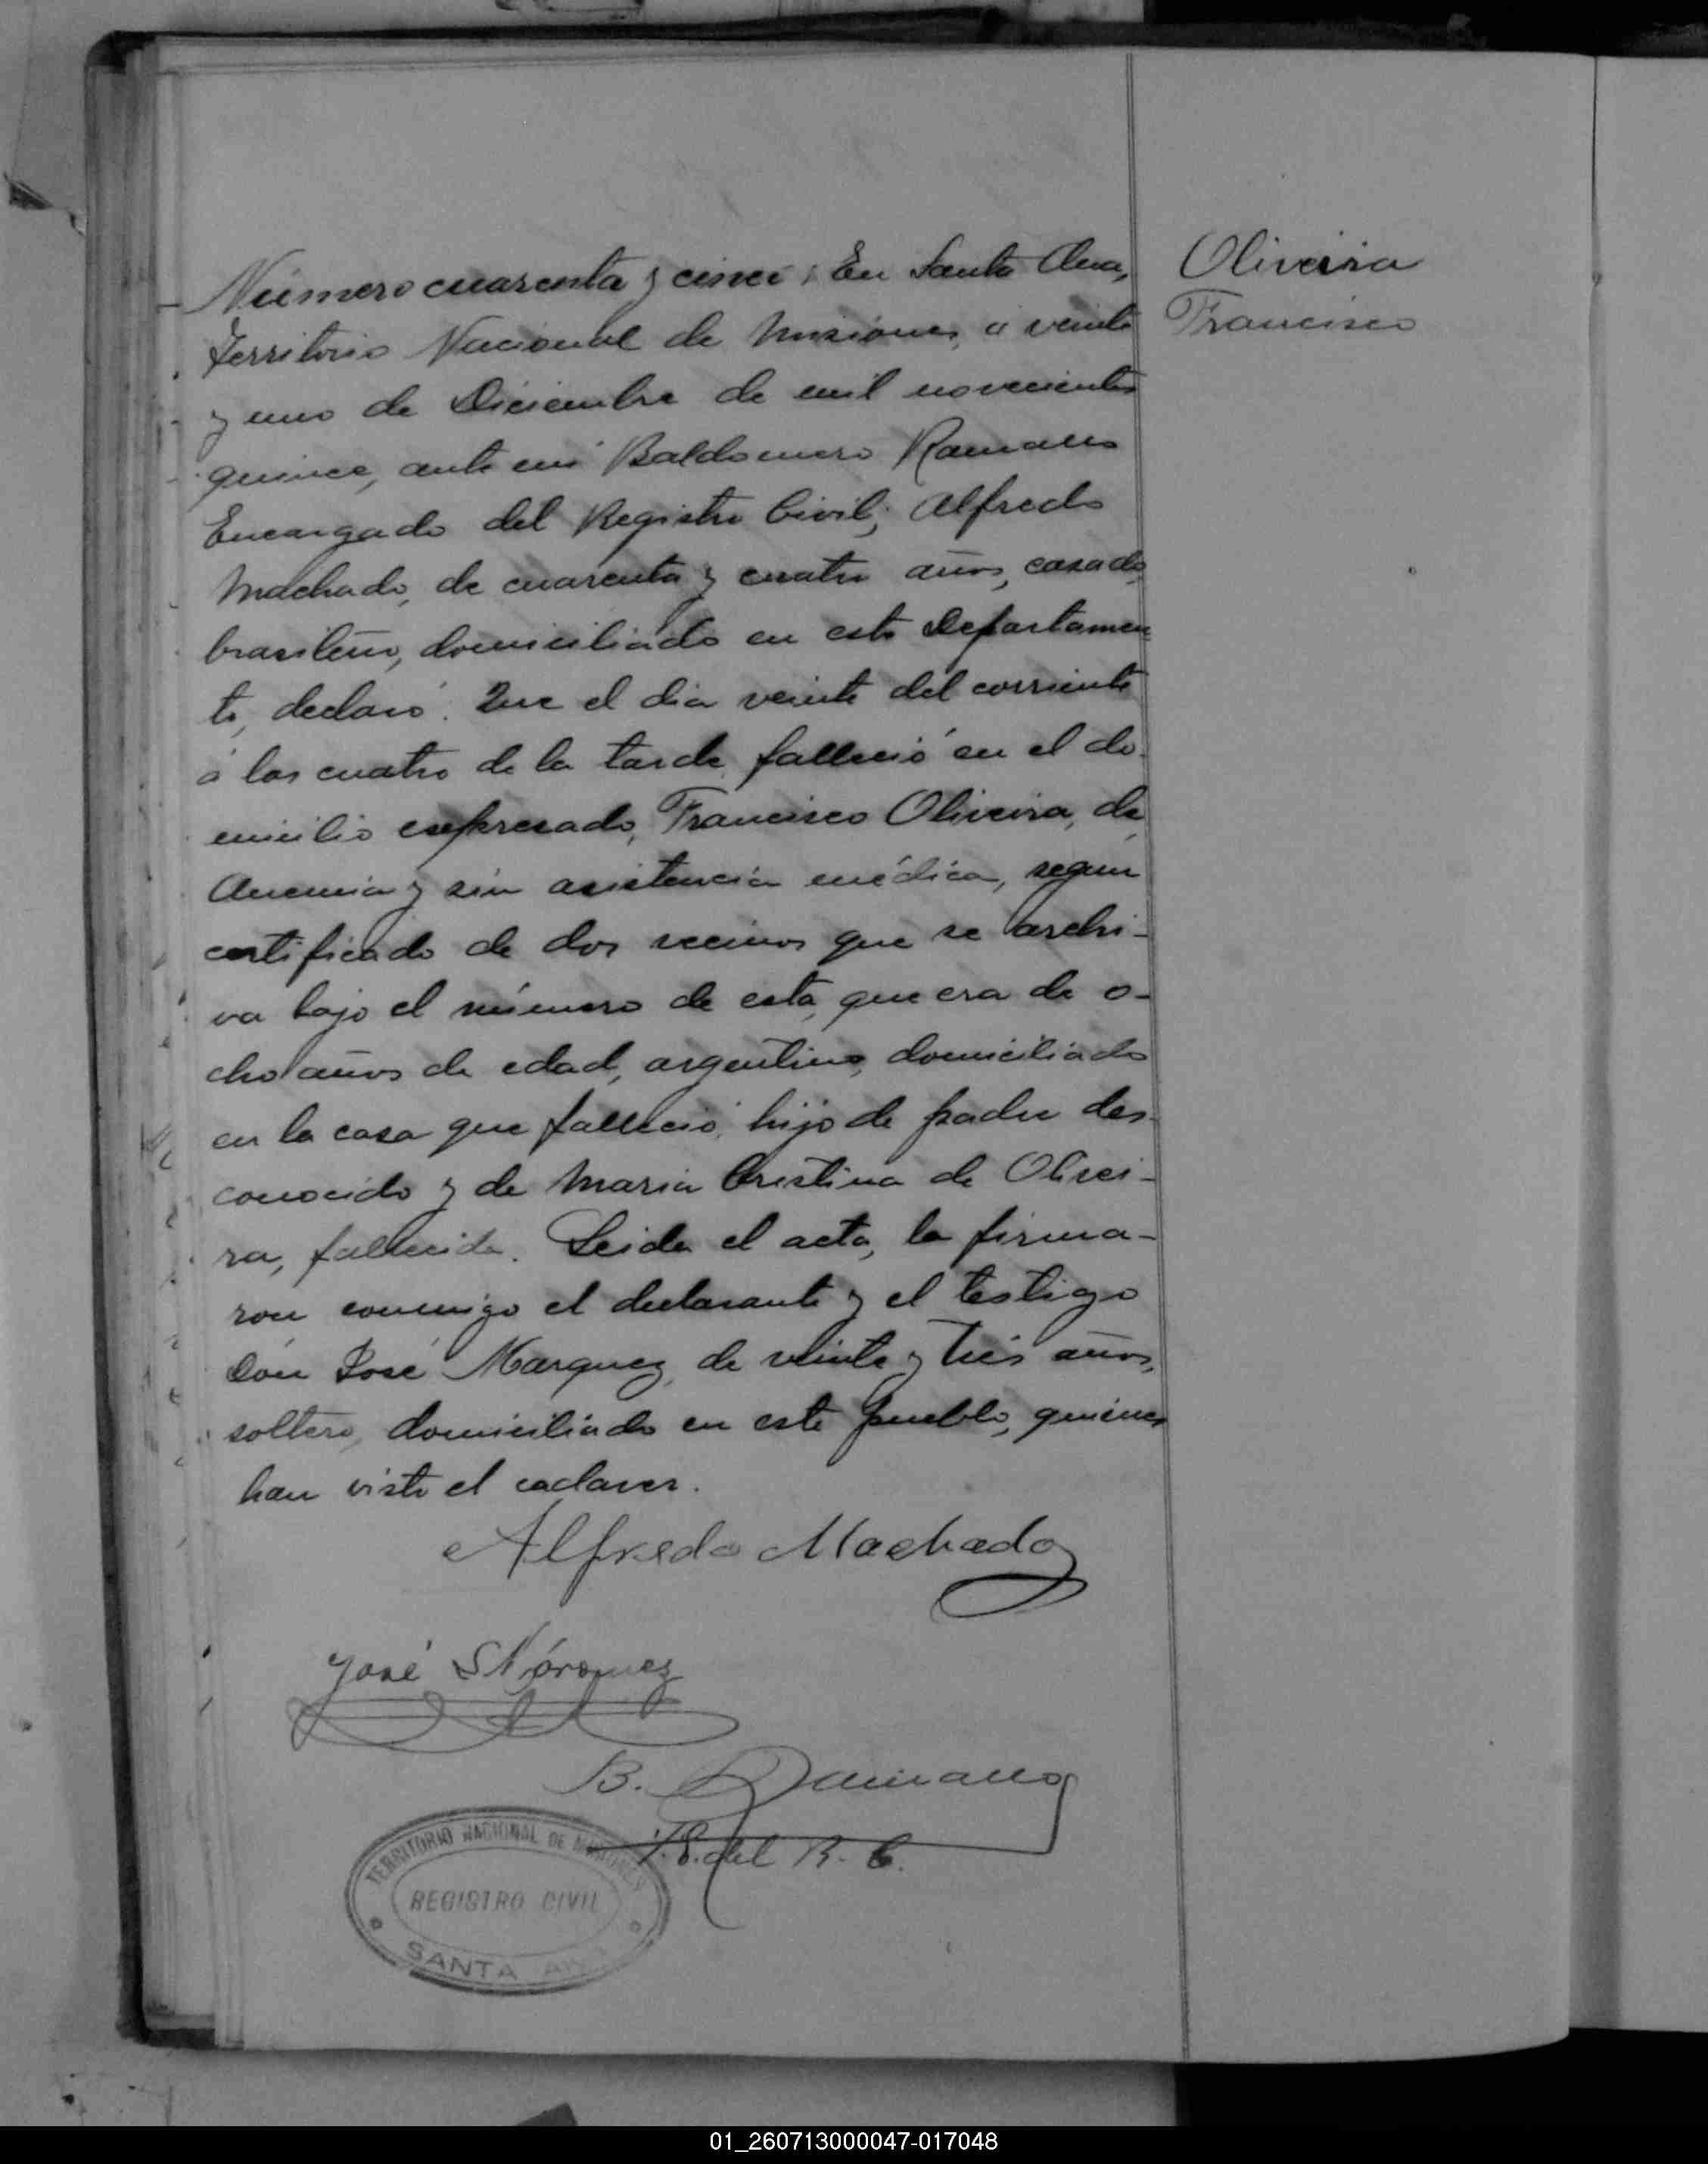 Número cuarenta y cinco: En Santa Ana,
Oliveira
Francisco
Territorio Nacional de Misiones, a veinte
y uno de Diciembre de mil novecientos
quince, ante mí Baldomero Ramallo
Encargado del Registro Civil; Alfredo
Machado, de cuarenta y cuatro años, casado,
brasileño, domiciliado en este Departamen
to, declaró: Que el dia veinte del corriente
á las cuatro de la tarde falleció en el do-
micilio expresado, Francisco Oliveira, de
Anemia y sin asistencia médica, segun
certificado de dos vecinos que se archi-
va bajo el número de esta, que era de o-
cho años de edad, argentino, domiciliado
en la casa que falleció, hijo de padre des-
conocido y de Maria Cristina de Olivei-
ra, fallecida. Leida el acta, la firma-
ron conmigo el declarante y el testigo
Don José Marquez, de veinte y tres años,
soltero, domiciliado en este pueblo, quienes
han visto el cadaver.
Alfredo Machado
José Márquez
B. Ramallo
E. del R. C.
TERRITORIO NACIONAL DE MISIONES
REGISTRO CIVIL
SANTA ANA